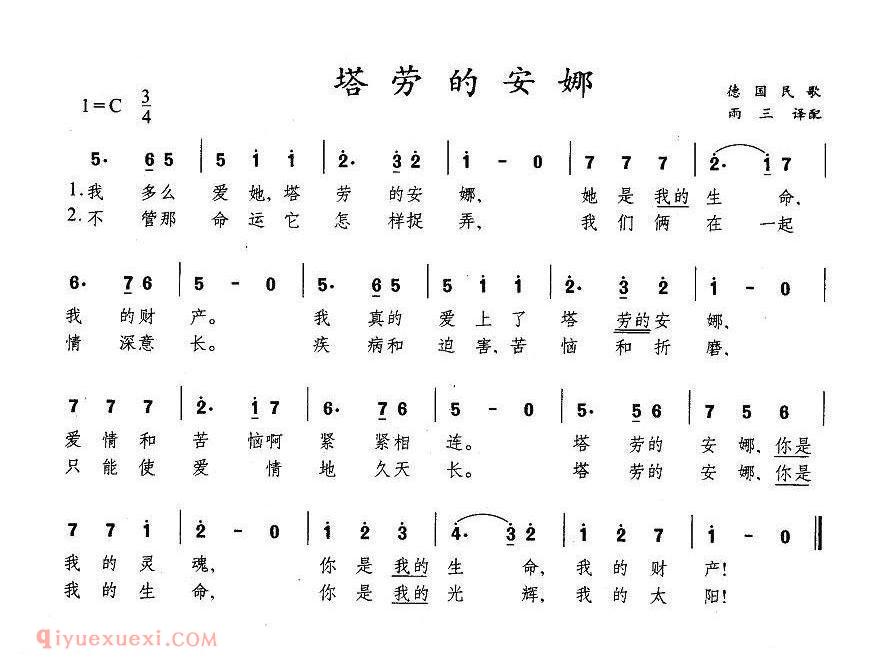 塔劳的安娜
1=C 3/4
德国民歌
雨三 译配
5· 6 5 | 5 1 1 | 2· 3 2 | 1 - 0 | 7 7 7 | 2· 1 7 |
1.我 多么 爱她,塔 劳 的安 娜, 她是我的 生 命,
2.不 管那 命运它 怎 样捉 弄, 我们俩 在 一起
6· 7 6 | 5 - 0 | 5· 6 5 | 5 1 1 | 2· 3 2 | 1 - 0 |
我 的财 产。 我 真的 爱上了 塔 劳的安 娜、
情 深意 长。 疾 病和 迫害、苦 恼 和折 磨、
7 7 7 | 2· 1 7 | 6· 7 6 | 5 - 0 | 5· 5 6 | 7 5 6 |
爱情和 苦 恼啊 紧 紧相 连。 塔 劳的 安娜、你是
只能使 爱 情地 久天 长。 塔 劳的 安娜、你是
7 7 1 | 2 - 0 | 1 2 3 | 4· 3 2 | 1 2 7 | 1 - 0 ‖
我的灵 魂, 你是我的 生 命,我的财 产!
我的生 命, 你是我的 光 辉,我的太 阳!
qiyuexuexi.com